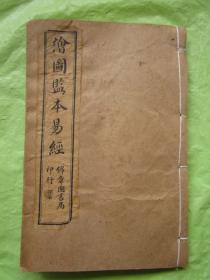 繪圖監本易經
錦章圖書局
印行